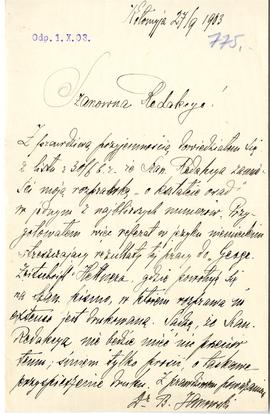 Kołomyja 27/9 1903
Odp. 1. X. 03.
775.
Szanowna Redakcyo!
Z prawdziwą przyjemnością dowiedziałem się
z listu z 30/8 b. r. że Szan. Redakcya zamie-
ści moją rozprawkę „o kształcie osad"
w jednym z najbliższych numerów. Przy-
gotowałem więc referat w języku niemieckim
streszczający rezultaty tej pracy do Geogr.
Zeitschrift Hettnera, gdzie powołuję się
na Szan. pismo, w którem rozprawa in
extenso jest drukowana. Sądzę, że Szan.
Redakcya nie będzie mieć nic przeciw
temu; śmiem tylko prosić o łaskawe
przyspieszenie druku. Z prawdziwem poważaniem
Dr B.